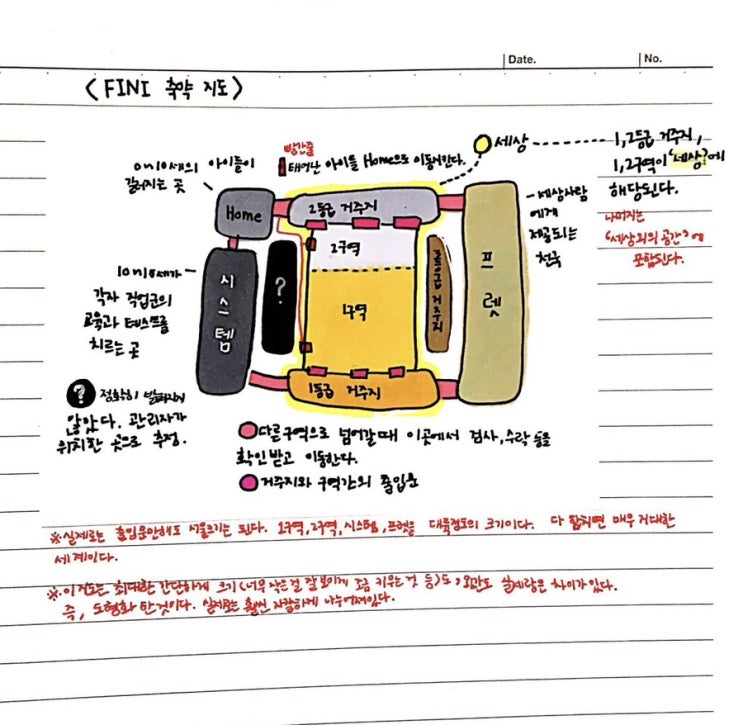 Date.
No.
〈FINI 축약 지도〉
0~10세의 아이들이
길러지는 곳
빨간줄
태어난 아이를 Home으로 이동시킨다.
세상
1,2등급 거주지,
1,2구역이 '세상'에
해당된다.
나머지는
'세상외의 공간'에
포함된다.
Home
2등급 거주지
2구역
1구역
1등급 거주지
?
시스템
거주지
프렛
세상사람
에게
제공되는
천국
10~16세가
각자 직업군의
교육과 테스트를
치르는 곳
? 정확히 밝혀지지
않았다. 관리자가
위치한 곳으로 추정.
다른구역으로 넘어갈때 이곳에서 검사, 수락 등을
확인받고 이동한다.
거주지와 구역간의 출입문
※실제로는 출입문만해도 서울크기는 된다. 1구역, 2구역, 시스템, 프렛은 대륙정도의 크기이다. 다 합치면 매우 거대한
세계이다.
※이지도는 최대한 간단하게 크기(너무 작은걸 잘보이게 조금 키우는것 등)도, 외관도 실제랑은 차이가 있다.
즉, 도형화 한것이다. 실제로는 훨씬 자잘하게 나누어져있다.